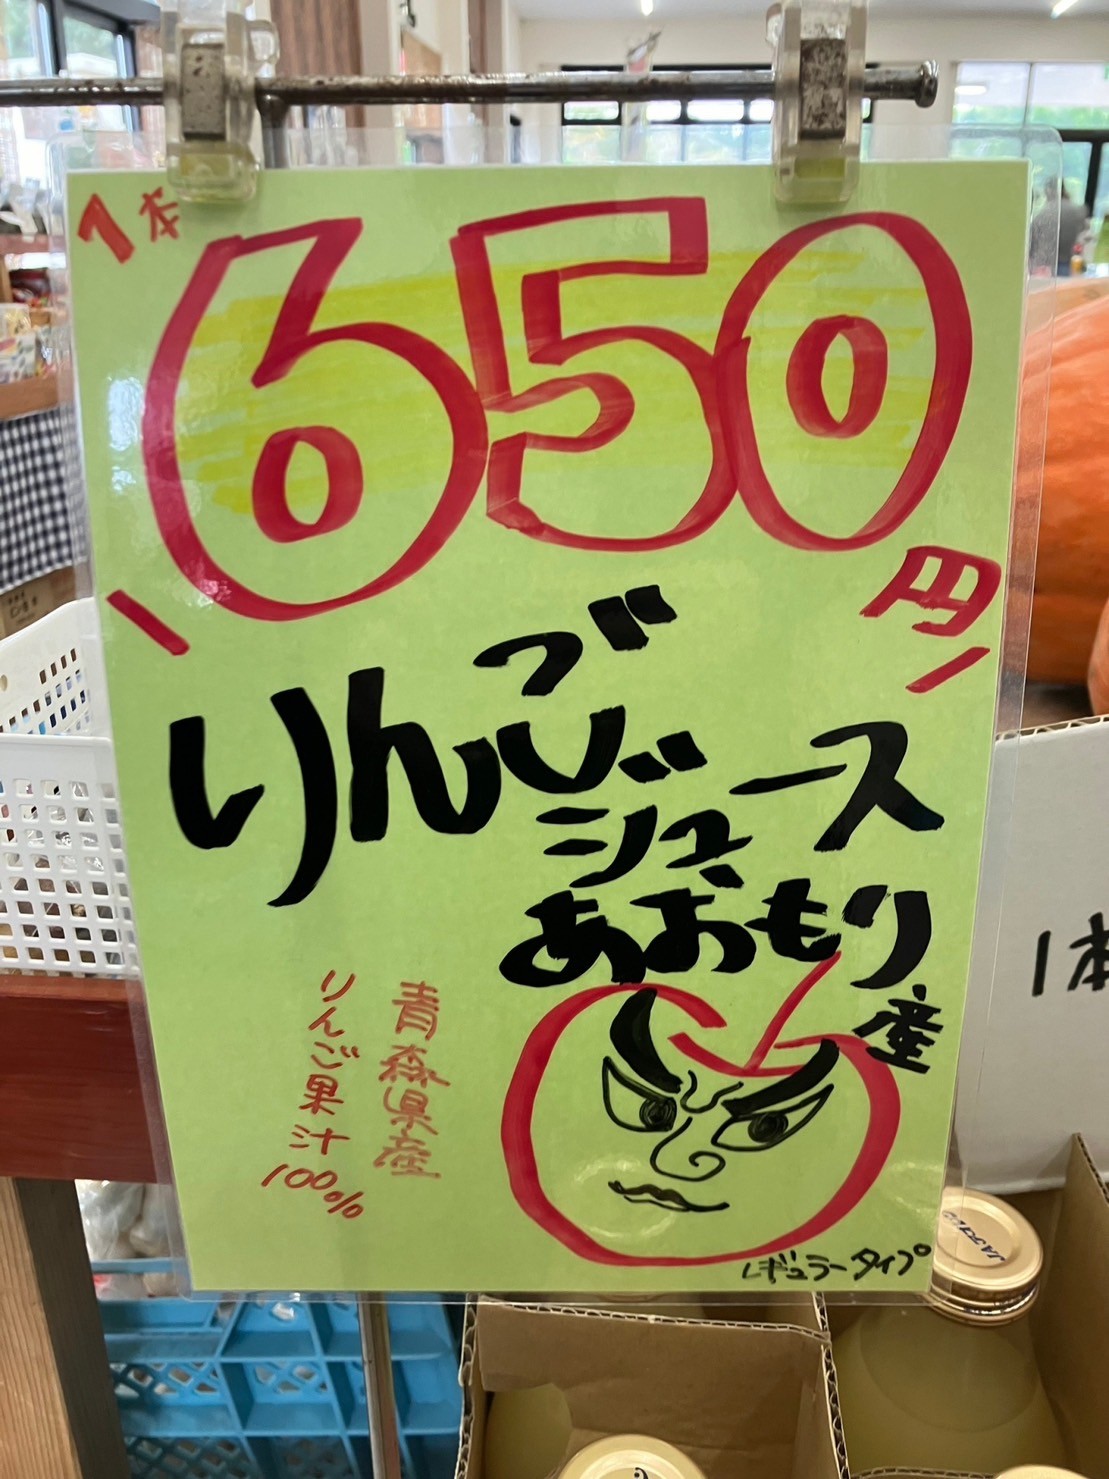 1本
650
円
りんご
ジュース
あおもり
産
青森県産
りんご果汁
100%
レギュラータイプ
1本